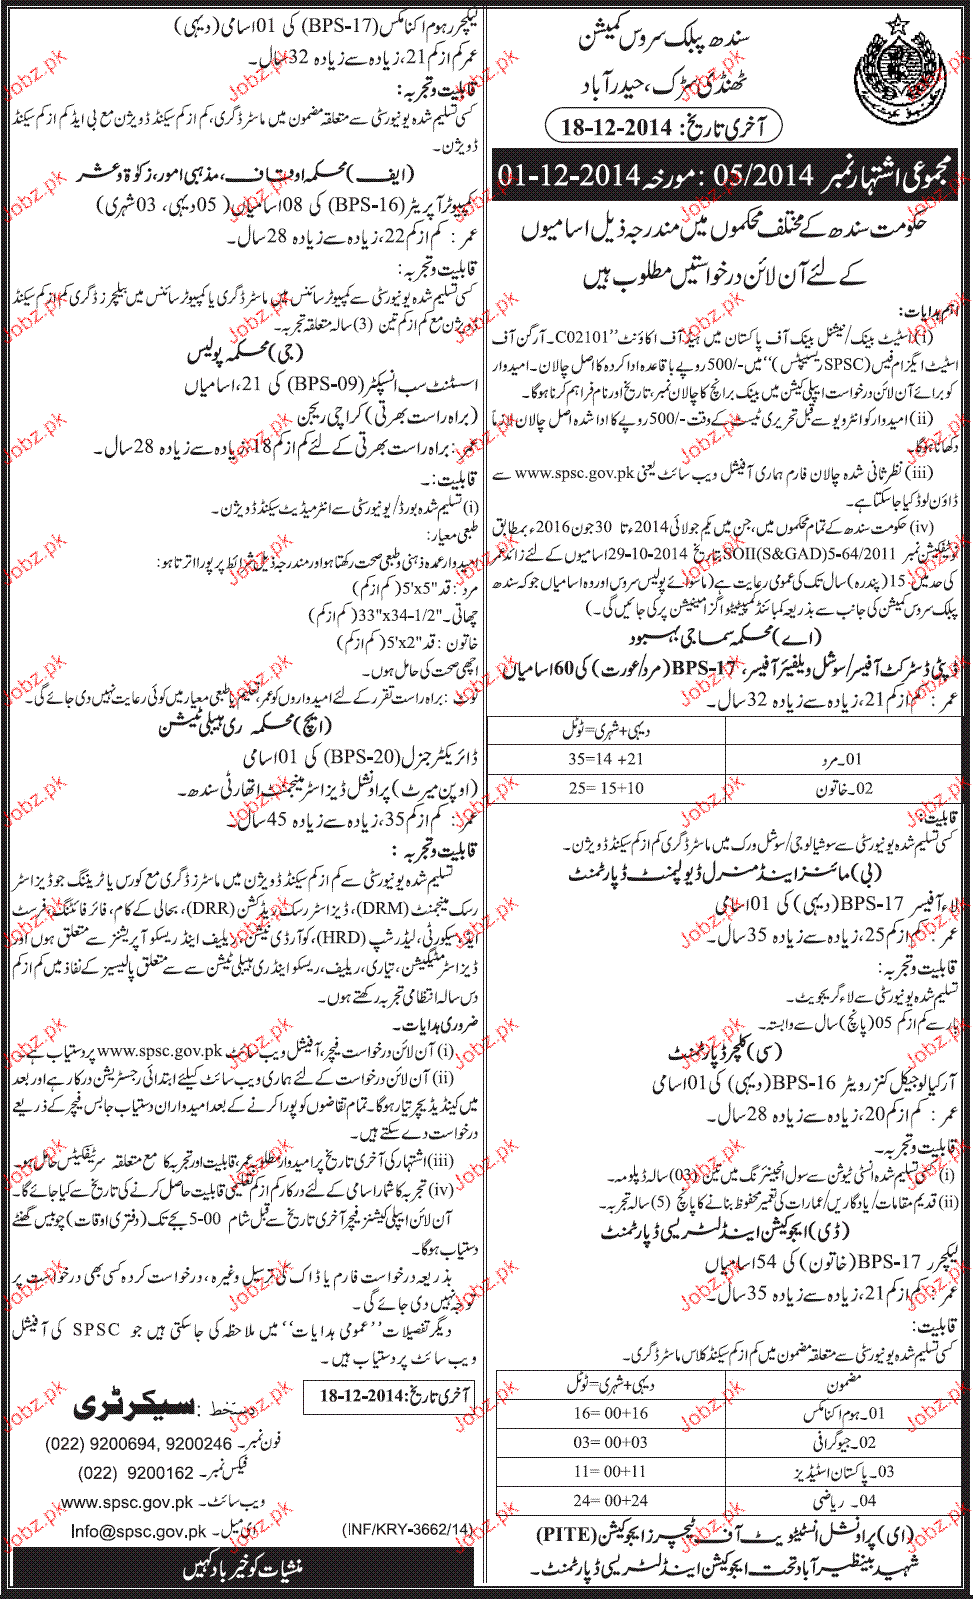 سندھ پبلک سروس کمیشن
ٹھنڈی سڑک، حیدرآباد
آخری تاریخ: 18-12-2014
مجموعی اشتہار نمبر 05/2014 : مورخہ 01-12-2014
حکومت سندھ کے مختلف محکموں میں مندرجہ ذیل اسامیوں
کے لئے آن لائن درخواستیں مطلوب ہیں
اہم ہدایات:
(i) اسٹیٹ بینک/نیشنل بینک آف پاکستان میں ہیڈ آف اکاؤنٹ "C02101۔ آرگن آف
اسٹیٹ ایگزام فیس (SPSC ریسیپٹس)" میں -/500 روپے باقاعدہ ادا کردہ کا اصل چالان۔ امیدوار
کو برائے آن لائن درخواست ایپلی کیشن میں بینک برانچ کا چالان نمبر، تاریخ اور نام فراہم کرنا ہوگا۔
(ii) امیدوار کو انٹرویو سے قبل تحریری ٹیسٹ کے وقت -/500 روپے کا ادا شدہ اصل چالان لازماً
دکھانا ہوگا۔
(iii) نظرثانی شدہ چالان فارم ہماری آفیشل ویب سائٹ یعنی www.spsc.gov.pk سے
ڈاؤن لوڈ کیا جاسکتا ہے۔
(iv) حکومت سندھ کے تمام محکموں میں، جن میں یکم جولائی 2014ء تا 30 جون 2016ء بمطابق
نوٹیفکیشن نمبر SOII(S&GAD)5-64/2011 بتاریخ 29-10-2014 اسامیوں کے لئے زائد عمر
کی حد میں 15 (پندرہ) سال تک کی عمومی رعایت ہے (ماسوائے پولیس سروس اور وہ اسامیاں جو کہ سندھ
پبلک سروس کمیشن کی جانب سے بذریعہ کمبائنڈ کمپیٹیٹو اگزامینیشن پر کی جائیں گی۔)
(اے) محکمہ سماجی بہبود
ڈپٹی ڈسٹرکٹ آفیسر/سوشل ویلفیئر آفیسر، BPS-17 (مرد/عورت) کی 60 اسامیاں
عمر: کم از کم 21، زیادہ سے زیادہ 32 سال۔
دیہی+شہری=ٹوٹل
01۔ مرد 21+ 14=35
02۔ خاتون 10+15 =25
قابلیت:
کسی تسلیم شدہ یونیورسٹی سے سوشیالوجی/سوشل ورک میں ماسٹر ڈگری کم از کم سیکنڈ ڈویژن۔
(بی) مائنز اینڈ منرل ڈیولپمنٹ ڈپارٹمنٹ
لاء آفیسر BPS-17 (دیہی) کی 01 اسامی
عمر: کم از کم 25، زیادہ سے زیادہ 35 سال۔
قابلیت و تجربہ:
تسلیم شدہ یونیورسٹی سے لاء گریجویٹ۔
بار سے کم از کم 05 (پانچ) سال سے وابستہ۔
(سی) کلچر ڈپارٹمنٹ
آرکیالوجیکل کنزرویٹر BPS-16 (دیہی) کی 01 اسامی
عمر: کم از کم 20، زیادہ سے زیادہ 28 سال۔
قابلیت و تجربہ:
(i) کسی تسلیم شدہ انسٹی ٹیوٹ سے سول انجینئرنگ میں تین (03) سالہ ڈپلومہ۔
(ii) قدیم مقامات/یادگاریں/عمارات کی تعمیر محفوظ بنانے کا پانچ (5) سالہ تجربہ۔
(ڈی) ایجوکیشن اینڈ لٹریسی ڈپارٹمنٹ
لیکچرر BPS-17 (خاتون) کی 54 اسامیاں
عمر: کم از کم 21، زیادہ سے زیادہ 35 سال۔
قابلیت:
کسی تسلیم شدہ یونیورسٹی سے متعلقہ مضمون میں کم از کم سیکنڈ کلاس ماسٹر ڈگری۔
مضمون دیہی+شہری=ٹوٹل
01۔ ہوم اکنامکس 16+00 =16
02۔ جیوگرافی 03+00 =03
03۔ پاکستان اسٹیڈیز 11+00 =11
04۔ ریاضی 24+00 =24
(ای) پراونشل انسٹیٹیوٹ آف ٹیچرز ایجوکیشن (PITE)
شہید بینظیرآباد تحت ایجوکیشن اینڈ لٹریسی ڈپارٹمنٹ۔
لیکچرر ہوم اکنامکس (BPS-17) کی 01 اسامی (دیہی)
عمر کم از کم 21، زیادہ سے زیادہ 32 سال۔
قابلیت و تجربہ:
کسی تسلیم شدہ یونیورسٹی سے متعلقہ مضمون میں ماسٹر ڈگری، کم از کم سیکنڈ ڈویژن مع بی ایڈ کم از کم سیکنڈ
ڈویژن۔
(ایف) محکمہ اوقاف، مذہبی امور، زکوٰۃ و عشر
کمپیوٹر آپریٹر (BPS-16) کی 08 اسامیاں (05 دیہی، 03 شہری)
عمر: کم از کم 22، زیادہ سے زیادہ 28 سال۔
قابلیت و تجربہ:
کسی تسلیم شدہ یونیورسٹی سے کمپیوٹر سائنس میں ماسٹر ڈگری یا کمپیوٹر سائنس میں بیچلرز ڈگری کم از کم سیکنڈ
ڈویژن مع کم از کم تین (3) سالہ متعلقہ تجربہ۔
(جی) محکمہ پولیس
اسسٹنٹ سب انسپکٹر (BPS-09) کی 21، اسامیاں
(براہ راست بھرتی) کراچی ریجن
عمر: براہ راست بھرتی کے لئے کم از کم 18، زیادہ سے زیادہ 28 سال۔
قابلیت:۔
(i) تسلیم شدہ بورڈ/یونیورسٹی سے انٹرمیڈیٹ سیکنڈ ڈویژن۔
طبعی معیار:
امیدوار عمدہ ذہنی و طبعی صحت رکھتا ہو اور مندرجہ ذیل شرائط پر پورا اترتا ہو:
مرد: قد 5'x5" (کم از کم)
چھاتی۔ 33"x34-1/2" (کم از کم)
خاتون: قد 5'x2" (کم از کم)
اچھی صحت کی حامل ہوں۔
نوٹ: براہ راست تقرر کے لئے امیدواروں کو عمر، تعلیم یا طبعی معیار میں کوئی رعایت نہیں دی جائے گی۔
(ایچ) محکمہ ری ہیبلی ٹیشن
ڈائریکٹر جنرل (BPS-20) کی 01 اسامی
(اوپن میرٹ) پراونشل ڈیزاسٹر مینجمنٹ اتھارٹی سندھ۔
عمر: کم از کم 35، زیادہ سے زیادہ 45 سال۔
قابلیت و تجربہ:
تسلیم شدہ یونیورسٹی سے کم از کم سیکنڈ ڈویژن میں ماسٹرز ڈگری مع کورس یا ٹریننگ جو ڈیزاسٹر
رسک مینجمنٹ (DRM)، ڈیزاسٹر رسک ریڈکشن (DRR)، بحالی کے کام، فائر فائٹنگ، فرسٹ
ایڈ، سیکورٹی، لیڈرشپ (HRD)، کوآرڈی نیشن، ریلیف اینڈ ریسکیو آپریشنز سے متعلق ہوں اور
ڈیزاسٹر مٹیگیشن، تیاری، ریلیف، ریسکیو اینڈ ری ہیبلی ٹیشن سے سے متعلق پالیسیز کے نفاذ میں کم از کم
دس سالہ انتظامی تجربہ رکھتے ہوں۔
ضروری ہدایات۔
(i) آن لائن درخواست فیچر، آفیشل ویب سائٹ www.spsc.gov.pk پر دستیاب ہے۔
(ii) آن لائن درخواست کے لئے ہماری ویب سائٹ کیلئے ابتدائی رجسٹریشن درکار ہے اور بعد
میں کینڈیڈیچر تیار ہوگا۔ تمام تقاضوں کو پورا کرنے کے بعد امیدواران دستیاب جابس فیچر کے ذریعے
درخواست دے سکتے ہیں۔
(iii) اشتہار کی آخری تاریخ پر امیدوار مطلوبہ عمر، قابلیت اور تجربہ کا مع متعلقہ سرٹیفکیٹس حامل ہو۔
(iv) تجربہ کا شمار اسامی کے لئے درکار کم از کم تعلیمی قابلیت حاصل کرنے کی تاریخ سے کیا جائے گا۔
آن لائن ایپلی کیشنز فیچر آخری تاریخ سے قبل شام 5-00 بجے تک (دفتری اوقات) چوبیس گھنٹے
دستیاب ہوگا۔
بذریعہ درخواست فارم یا ڈاک کی ترسیل وغیرہ، درخواست کردہ کسی بھی درخواست پر
توجہ نہیں دی جائے گی۔
دیگر تفصیلات "عمومی ہدایات" میں ملاحظہ کی جاسکتی ہیں جو SPSC کی آفیشل
ویب سائٹ پر دستیاب ہیں۔
آخری تاریخ: 18-12-2014
دستخط: سیکرٹری
فون نمبر۔ (022) 9200694, 9200246
فیکس نمبر۔ (022) 9200162
ویب سائٹ۔ www.spsc.gov.pk
ای میل۔ Info@spsc.gov.pk
(INF/KRY-3662/14)
منشیات کو خیرباد کہیں
Jobz.pk